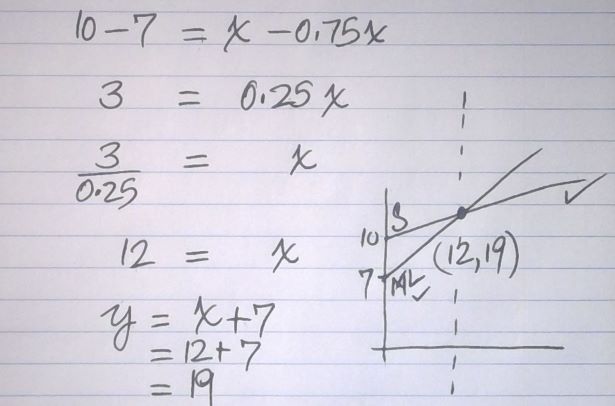 10-7 = x -0.75x
3 = 0.25x
3/0.25 = x
12 = x
y = x+7
= 12+7
= 19
S
10
(12,19)
7